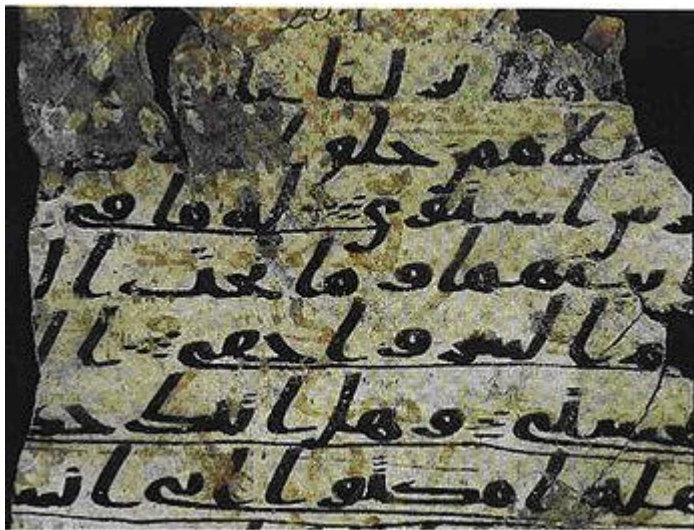 ما انزلنا
لا ممن خلق ا
رش استوى له ما فى
بينهما وما تحت ال
م السر واخفى ال
حسنى وهل اتاك حد
هله امكثوا انى انس